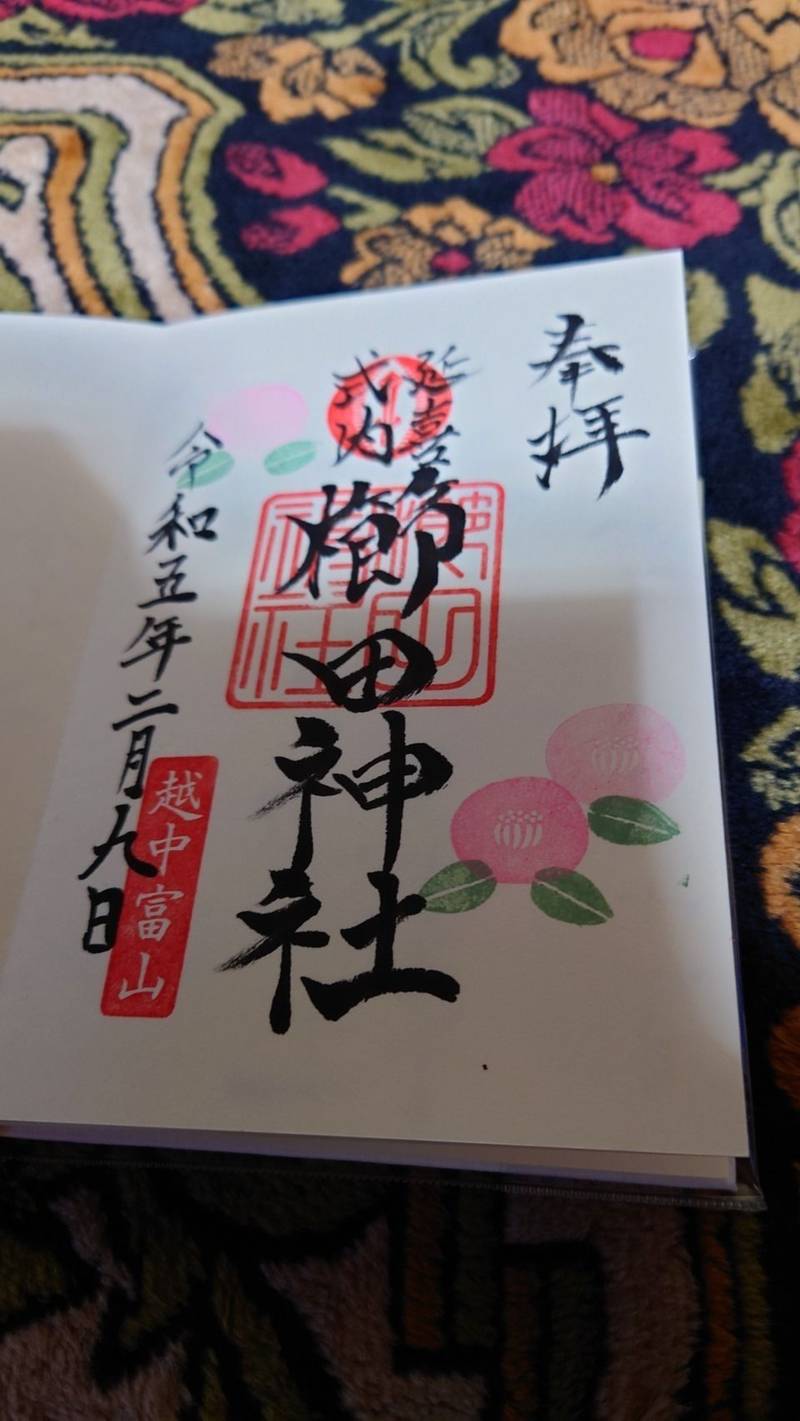 奉拝
延喜
式内
櫛田神社
令和五年二月九日
越中富山